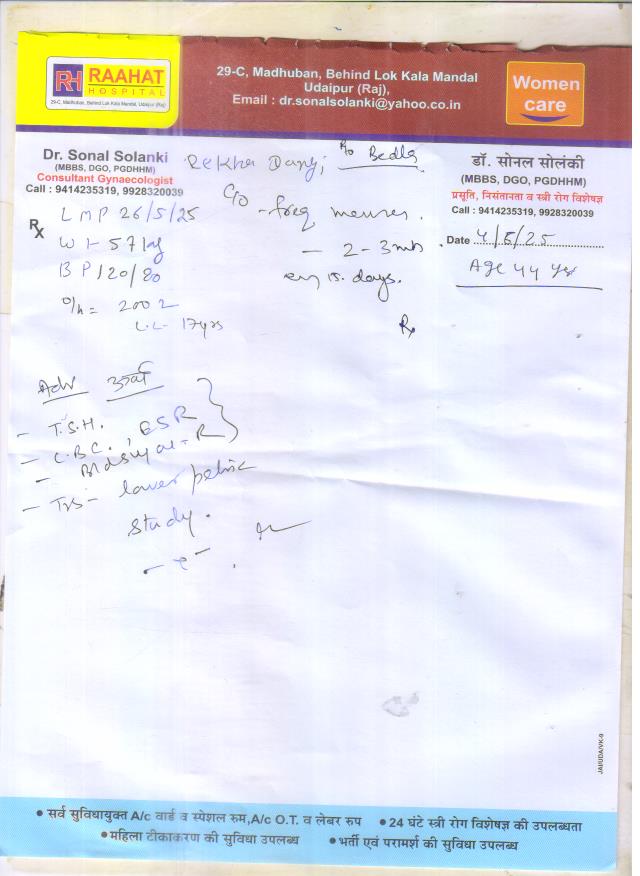 RH RAAHAT
HOSPITAL
29-C, Madhuban, Behind Lok Kala Mandal, Udaipur (Raj)
29-C, Madhuban, Behind Lok Kala Mandal
Udaipur (Raj),
Email : dr.sonalsolanki@yahoo.co.in
Women
care
Dr. Sonal Solanki
(MBBS, DGO, PGDHHM)
Consultant Gynaecologist
Call : 9414235319, 9928320039
Rekha Dangi R/o Bedla
डॉ. सोनल सोलंकी
(MBBS, DGO, PGDHHM)
प्रसूति, निसंतानता व स्त्री रोग विशेषज्ञ
Call : 9414235319, 9928320039
Date 4/6/25
Age 44 yrs
Rx
LMP 26/5/25
Wt 57 kg
BP 120/80
O/h = 2002
L.C- 17yrs
C/o - freq menses.
- 2-3 mth
15 days.
Rx
Adv
- T.S.H.
- C.B.C., ESR
- Bld sugar - R
- TVS - lower pelvic
study.
JAI/UDA/VK-9
• सर्व सुविधायुक्त A/c वार्ड व स्पेशल रुम, A/c O.T. व लेबर रुप • 24 घंटे स्त्री रोग विशेषज्ञ की उपलब्धता
• महिला टीकाकरण की सुविधा उपलब्ध • भर्ती एवं परामर्श की सुविधा उपलब्ध